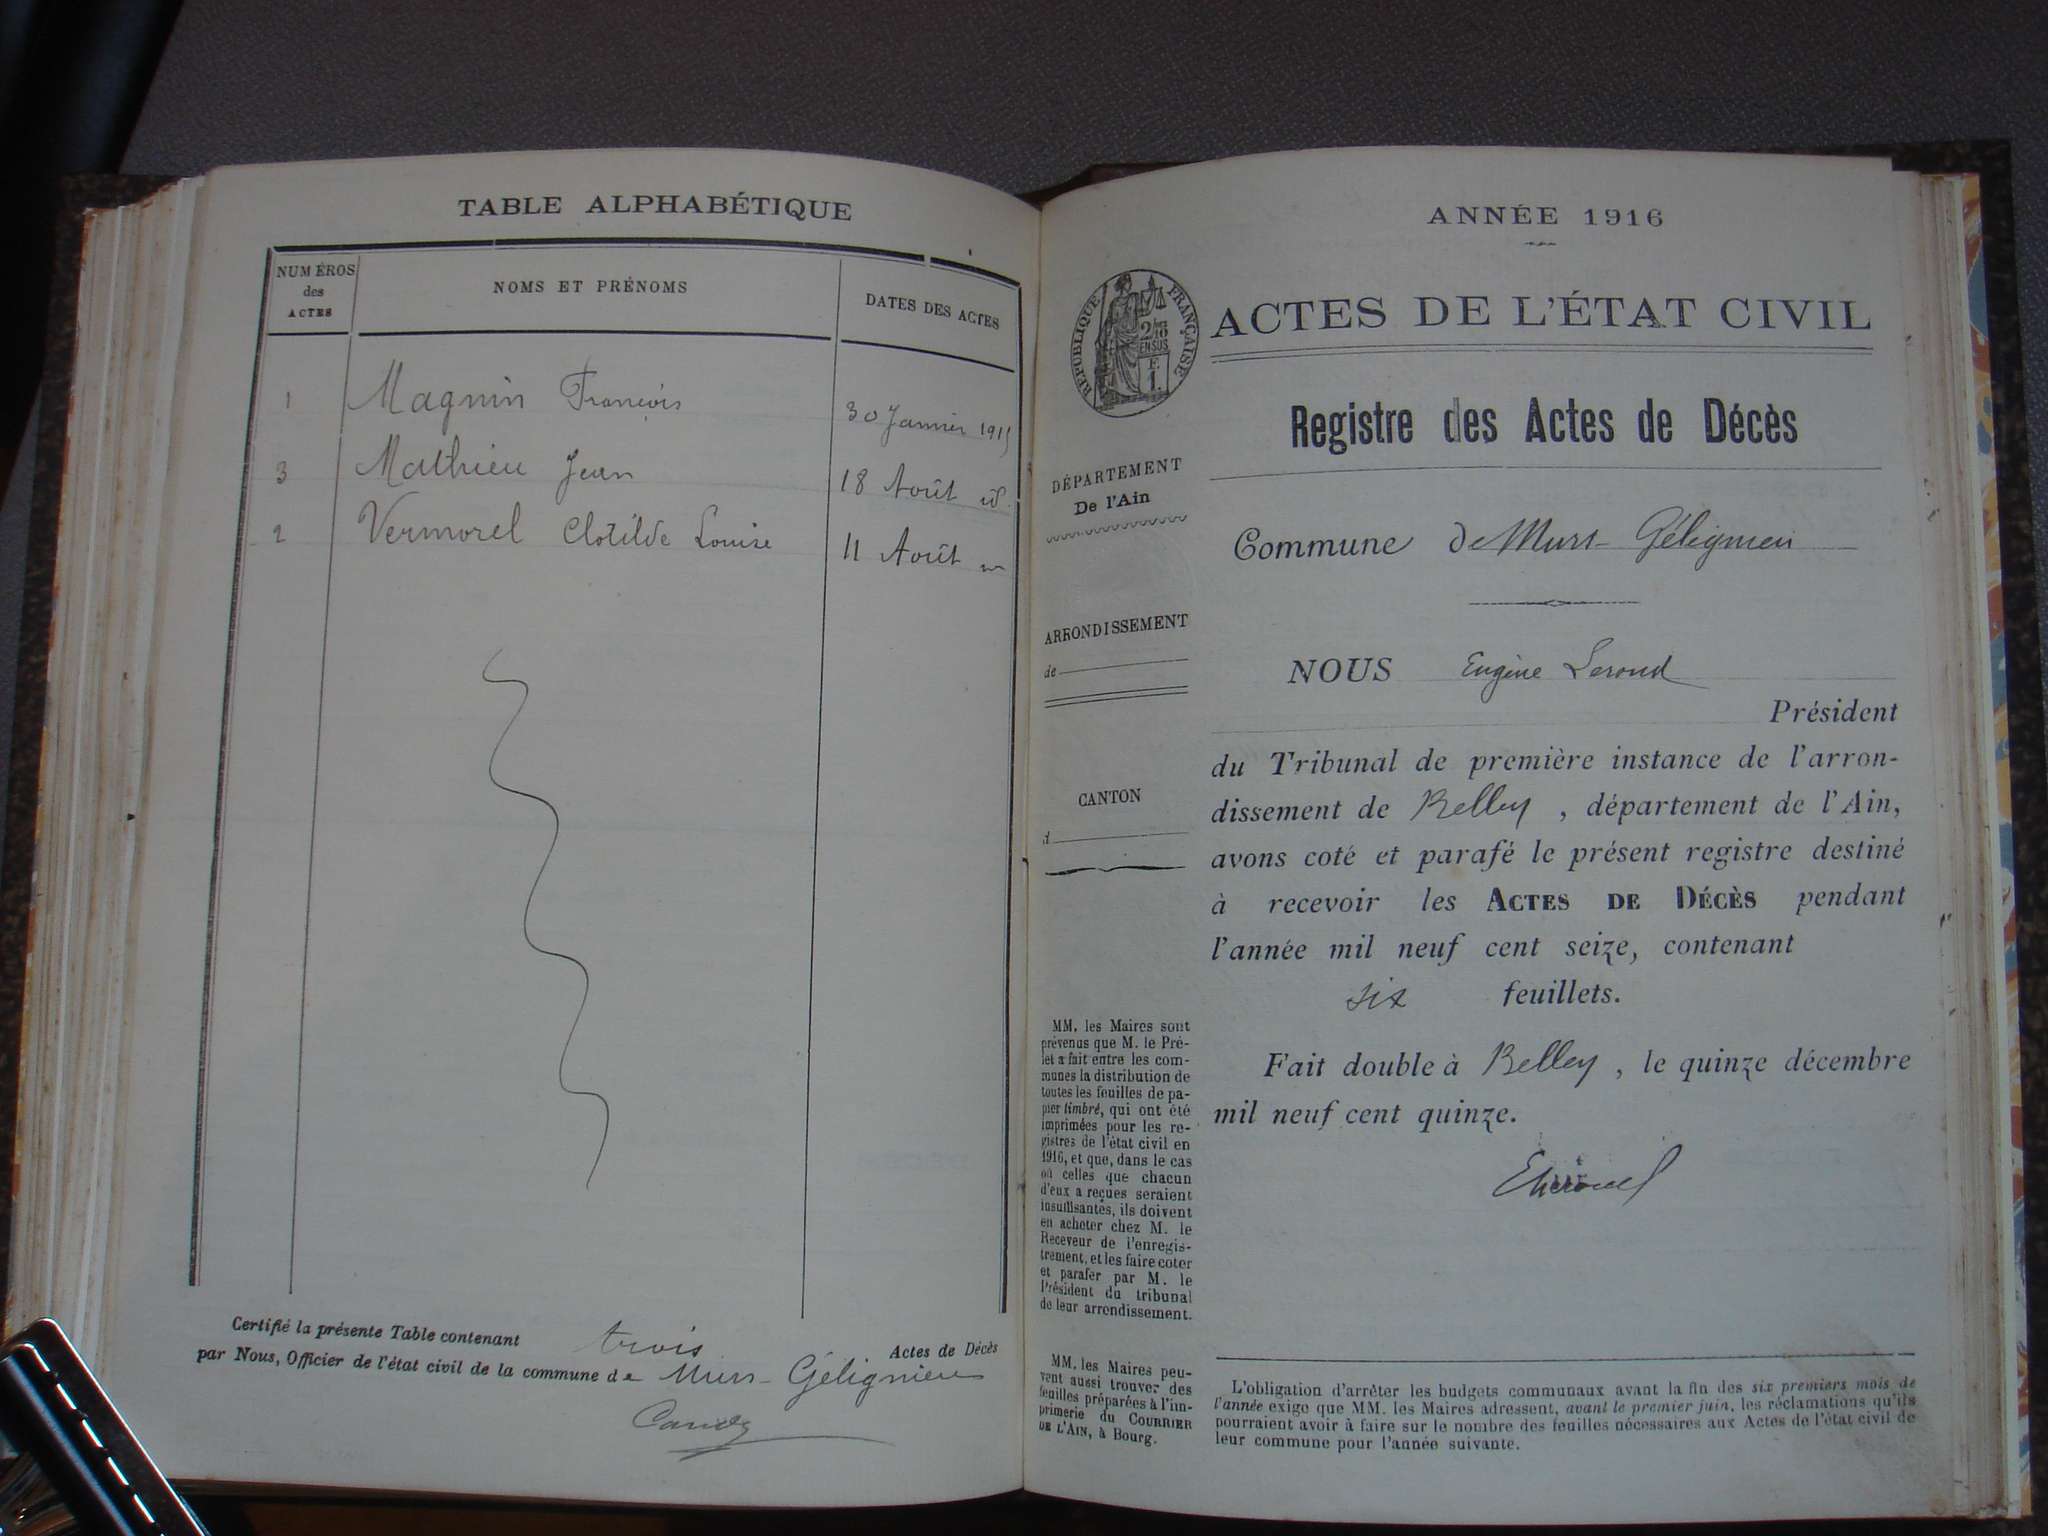 TABLE ALPHABÉTIQUE
NUMÉROS
des
ACTES
NOMS ET PRÉNOMS
DATES DES ACTES
1 Magnin François 30 Janvier 1915
3 Mathieu Jean 18 Août id.
2 Vermorel Clotilde Louise 11 Août
Certifié la présente Table contenant trois Actes de Décès
par Nous, Officier de l'état civil de la commune de Murs-Gélignieux
ANNÉE 1916
RÉPUBLIQUE FRANÇAISE
ACTES DE L'ÉTAT CIVIL
Registre des Actes de Décès
DÉPARTEMENT
De l'Ain
Commune de Murs-Gélignieu
ARRONDISSEMENT
de
NOUS Eugène
Président
du Tribunal de première instance de l'arron-
dissement de Belley, département de l'Ain,
CANTON
d
avons coté et parafé le présent registre destiné
à recevoir les ACTES DE DÉCÈS pendant
l'année mil neuf cent seize, contenant
six feuillets.
Fait double à Belley, le quinze décembre
mil neuf cent quinze.
MM. les Maires sont
prévenus que M. le Pré-
fet a fait entre les com-
munes la distribution de
toutes les feuilles de pa-
pier timbré, qui ont été
imprimées pour les re-
gistres de l'état civil en
1916, et que, dans le cas
où celles que chacun
d'eux a reçues seraient
insuffisantes, ils doivent
en acheter chez M. le
Receveur de l'enregis-
trement, et les faire coter
et parafer par M. le
Président du tribunal
de leur arrondissement.
MM. les Maires peu-
vent aussi trouver des
feuilles préparées à l'im-
primerie du COURRIER
DE L'AIN, à Bourg.
L'obligation d'arrêter les budgets communaux avant la fin des six premiers mois de
l'année exige que MM. les Maires adressent, avant le premier juin, les réclamations qu'ils
pourraient avoir à faire sur le nombre des feuilles nécessaires aux Actes de l'état civil de
leur commune pour l'année suivante.